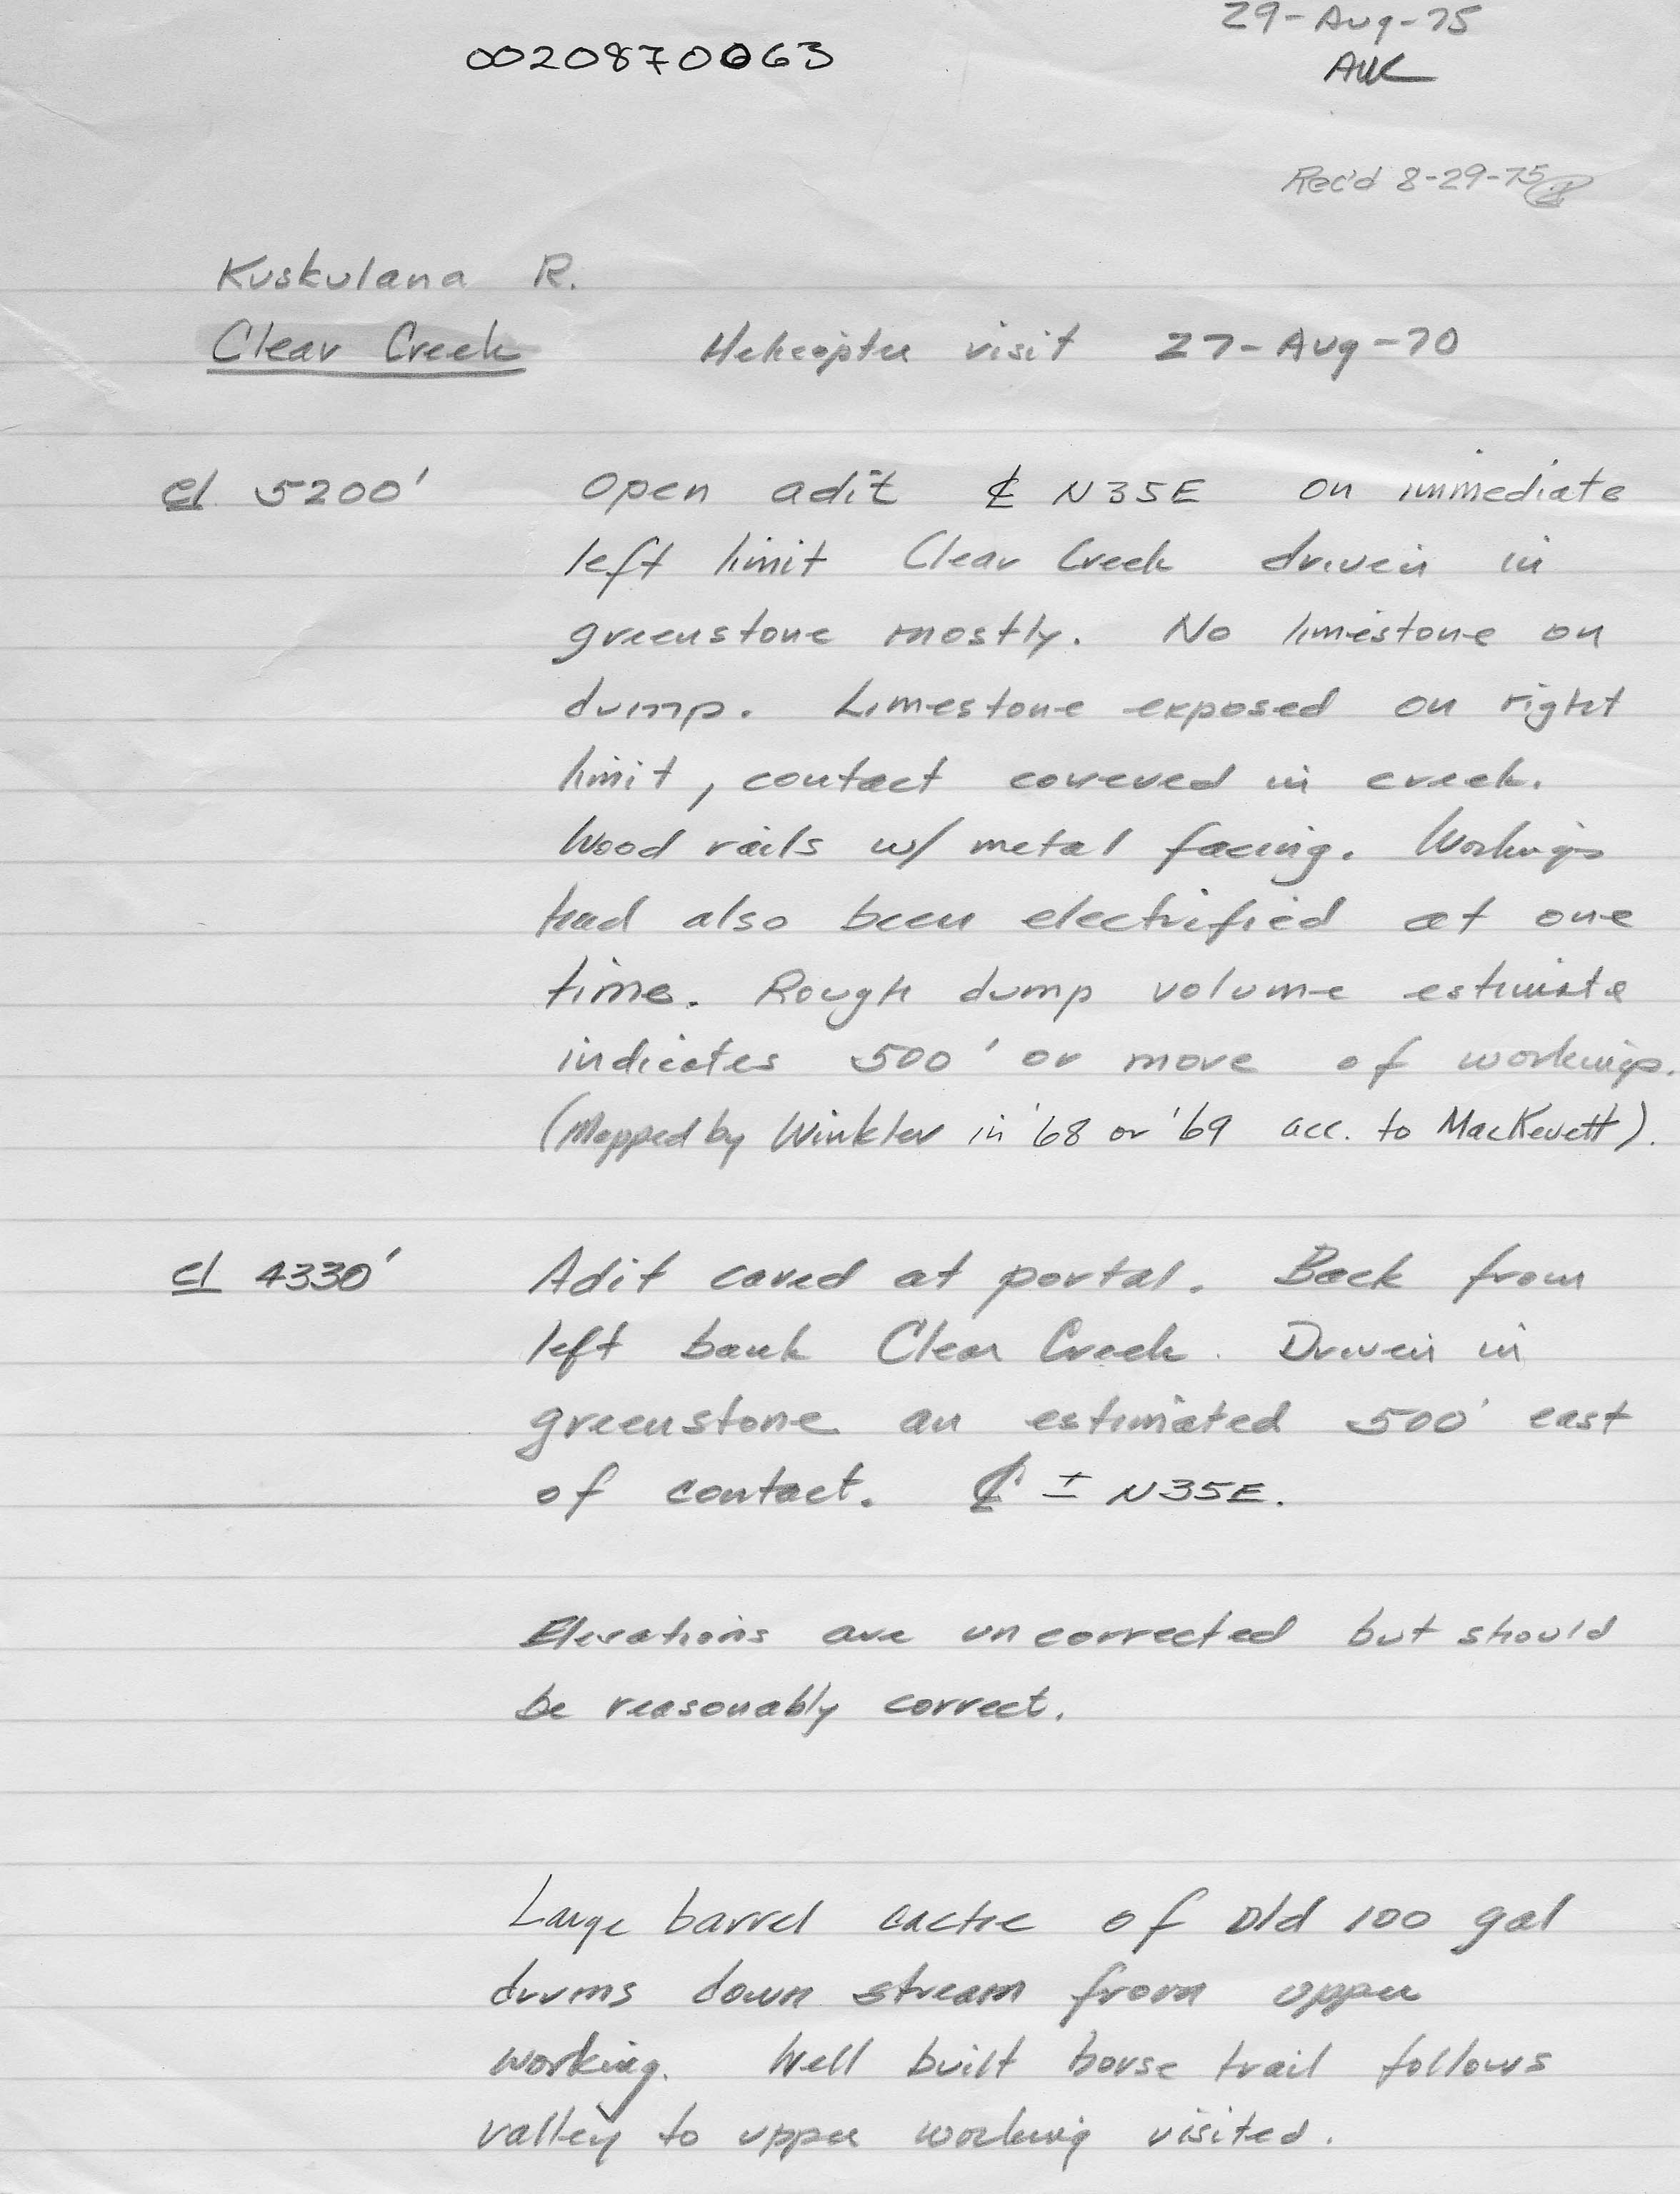 29-Aug-75
0020870063
Rec'd 8-29-75
Kuskulana R.
Clear Creek Helicopter visit 27-Aug-70
el 5200' Open adit ℄ N35E on immediate
left limit Clear Creek driven in
greenstone mostly. No limestone on
dump. Limestone exposed on right
limit, contact covered in creek.
Wood rails w/ metal facing. Workings
had also been electrified at one
time. Rough dump volume estimate
indicates 500' or more of workings.
(Mapped by Winkler in '68 or '69 acc. to MacKevett).
el 4330' Adit caved at portal. Back from
left bank Clear Creek. Driven in
greenstone an estimated 500' east
of contact. ℄ ± N35E.
Elevations are uncorrected but should
be reasonably correct.
Large barrel cache of old 100 gal
drums down stream from upper
working. Well built horse trail follows
valley to upper working visited.